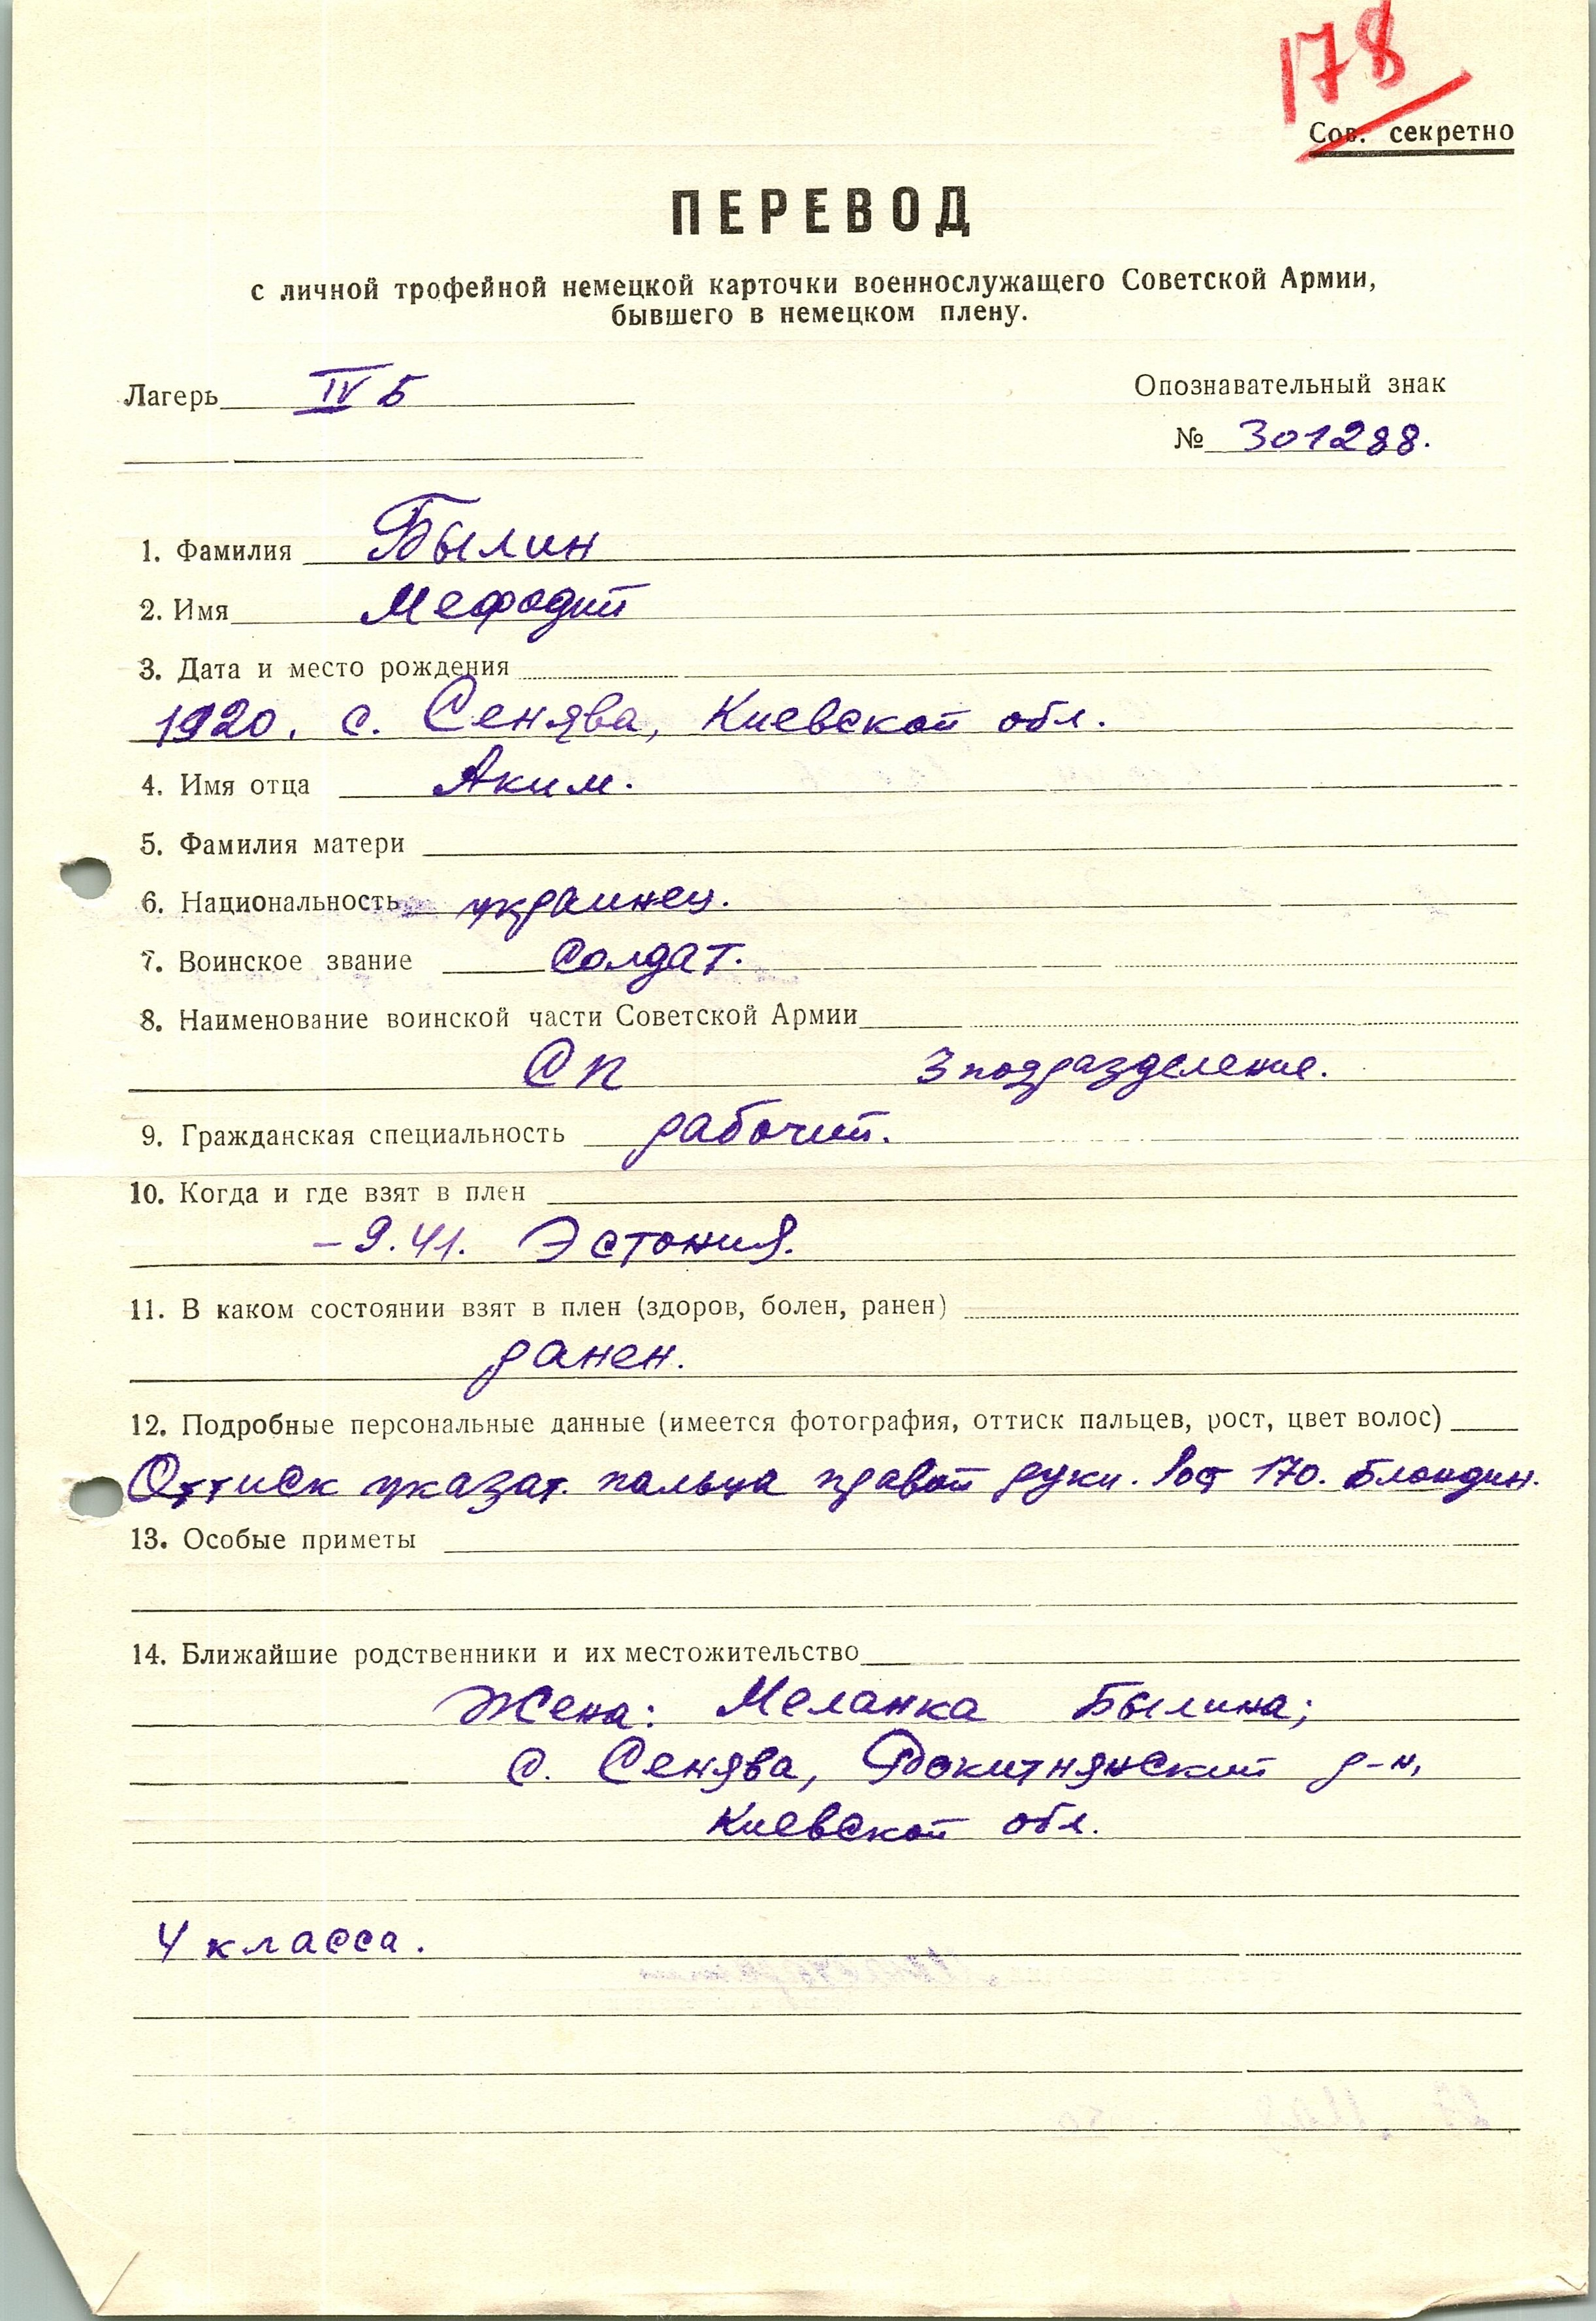 178
Сов. секретно
ПЕРЕВОД
с личной трофейной немецкой карточки военнослужащего Советской Армии,
бывшего в немецком плену.
Лагерь IV Б
Опознавательный знак
№ 301288.
1. Фамилия Былин
2. Имя Мефодий
3. Дата и место рождения
1920. с. Сенява, Киевской обл.
4. Имя отца Аким.
5. Фамилия матери
6. Национальность украинец.
7. Воинское звание солдат.
8. Наименование воинской части Советской Армии
СП 3 подразделение.
9. Гражданская специальность рабочий.
10. Когда и где взят в плен
– 9.41. Эстония.
11. В каком состоянии взят в плен (здоров, болен, ранен)
ранен.
12. Подробные персональные данные (имеется фотография, оттиск пальцев, рост, цвет волос)
Оттиск указат. пальца правой руки. Рост 170. Блондин.
13. Особые приметы
14. Ближайшие родственники и их местожительство
Жена: Меланка Былина;
с. Сенява, Рокитнянский р-н,
Киевской обл.
4 класса.